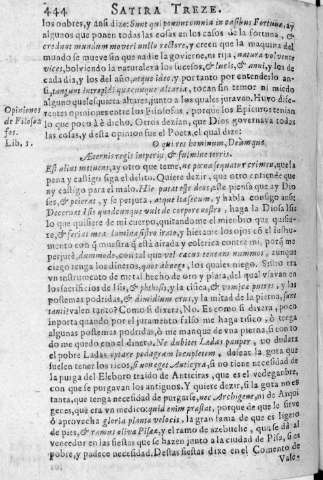 444 SATIRA TREZE.
los nobres, y ansi dize: Sunt qui ponunt omnia in casibus Fortunæ, ay
algunos que ponen todas las cosas en los casos de la fortuna, &
credunt mundum moveri nullo rectore, y creen que la maquina del
mundo se mueve sin que nadie la govierne, ni rija, natura volvente
vices, bolviendo la naturaleza los sucesos, & lucis, & anni, y los de
cada dia, y los del año, atque ideo, y por tanto por entenderlo ansi,
tangunt intrepidi quæcunque altaria, tocan sin temor ni miedo
alguno qualesquiera altares, junto a los quales juravan. Huvo diferentes
opiniones entre los Filosofos, porque los Epicuros tenian
lo que poco a dicho. Otros dezian, que Dios governava todas
las cosas, y desta opinion fue el Poeta, el qual dize:
Opiniones
de Filosofos.
Lib. 1.
O qui res hominum, Deumque
Aeternis regis imperijs, & fulmine terris.
Est alius metuens, ay otro que teme, ne pœna sequatur crimen, que la
pena y castigo siga el delito. Quiere dezir, que otro entiende que
ay castigo para el malo. Hic putat esse deos, este piensa que ay Dioses,
& peierat, y se perjura, atque ita secum, y habla consigo ansi:
Decernat Isis quodcunque vult de corpore nostro, haga la Diosa Isis
lo que quisiere de mi cuerpo, quitandome el miembro que quisiere,
& feriat mea lumina sistro irato, y hierame los ojos con el instrumento
con que muestra que está airada y colerica contra mi, porque me
perjure, dummodo, con tal que vel cæcus teneam nummos, aunque
ciego tenga los dineros, quos abnego, los quales niego. Sistro era
un instrumento de metal hecho de oro y plata, del qual usavan en
los sacrificios de Isis, & phthisis, y la tisica, & vomicæ putres, y las
postemas podridas, & dimidium crus, y la mitad de la pierna, sunt
tanti valen tanto? Como si dixera, No. Es como si dixera, poco
importa quando por el juramento falso me haga tisico, ò tenga
algunas postemas podridas, ò me manque de una pierna, si con todo
me quedo con el dinero. Ne dubitet Ladas pauper, no dudara
el pobre Ladas optare podagram locupletem, desear la gota que
suelen tener los ricos, si non eget Anticyra, si no tiene necesidad de
la purga del Eleboro traido de Anticiras, que es el vedegambre,
con que se purgavan los antiguos. Y quiere dezir, si la gota no es
tanta, que tenga necesidad de purgarse, nec Archigene, ni de Arquigenes,
que era un medico: quid enim præstat, porque de que le sirve
ò aprovecha gloria plantæ velocis, la gran fama de que es ligero
de pies, & ramus olivæ Pisææ, y el ramo de azebuche, que se dá al
vencedor en las fiestas que se hazen junto a la ciudad de Pisa, si es
pobre, y padece necesidad. Destas fiestas dixe en el Comento de
Vale-